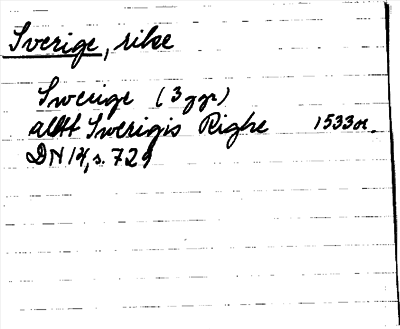 Sverige, rike
Swerige (3 ggr)
allt Swerigis Righe 1533 or.
DN 14, s. 729